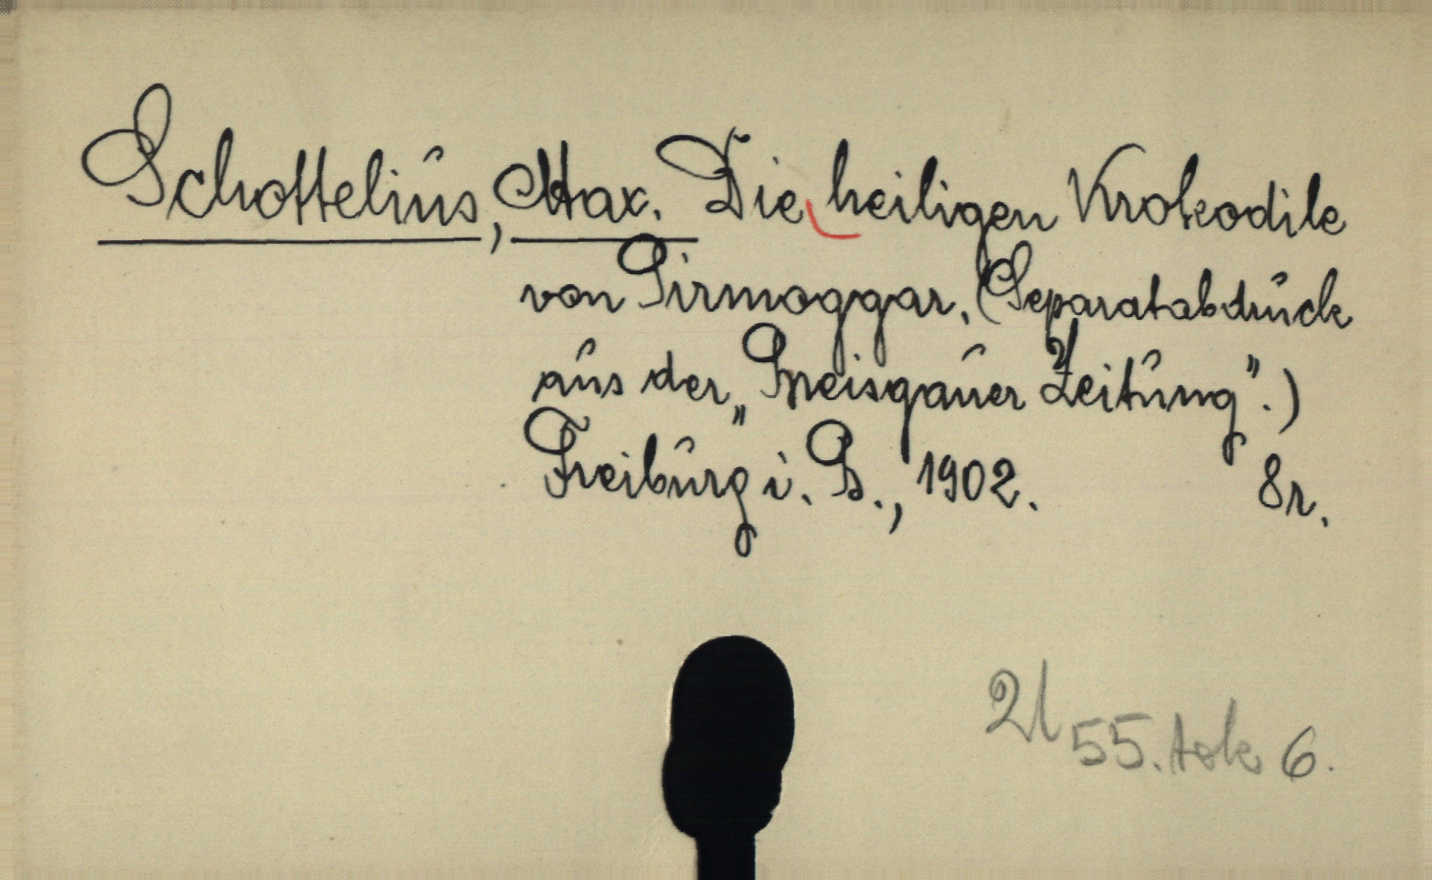 Schottelius, Max. Die heiligen Krokodile
von Pirmoggar. (Separatabdruck
aus der „Breisgauer Zeitung".)
Freiburg i. B., 1902. 8r.
55. tok 6.